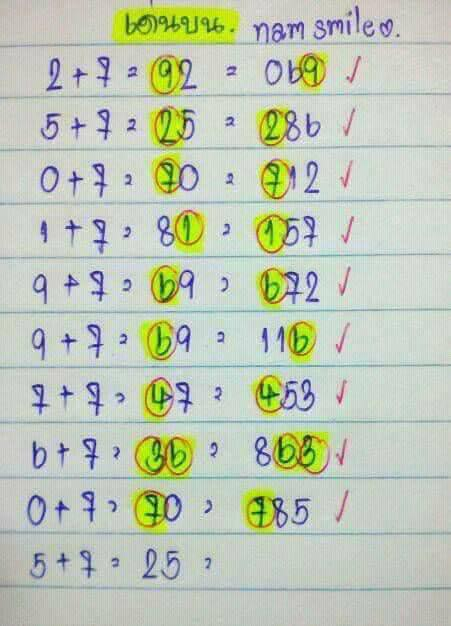 เด่นบน. nam smile ♡.
2 + 7 = 92 = 069 ✓
5 + 7 = 25 = 286 ✓
0 + 7 = 70 = 712 ✓
1 + 7 = 81 = 157 ✓
9 + 7 = 69 = 672 ✓
9 + 7 = 69 = 116 ✓
7 + 7 = 47 = 453 ✓
6 + 7 = 36 = 863 ✓
0 + 7 = 70 = 785 ✓
5 + 7 = 25 =